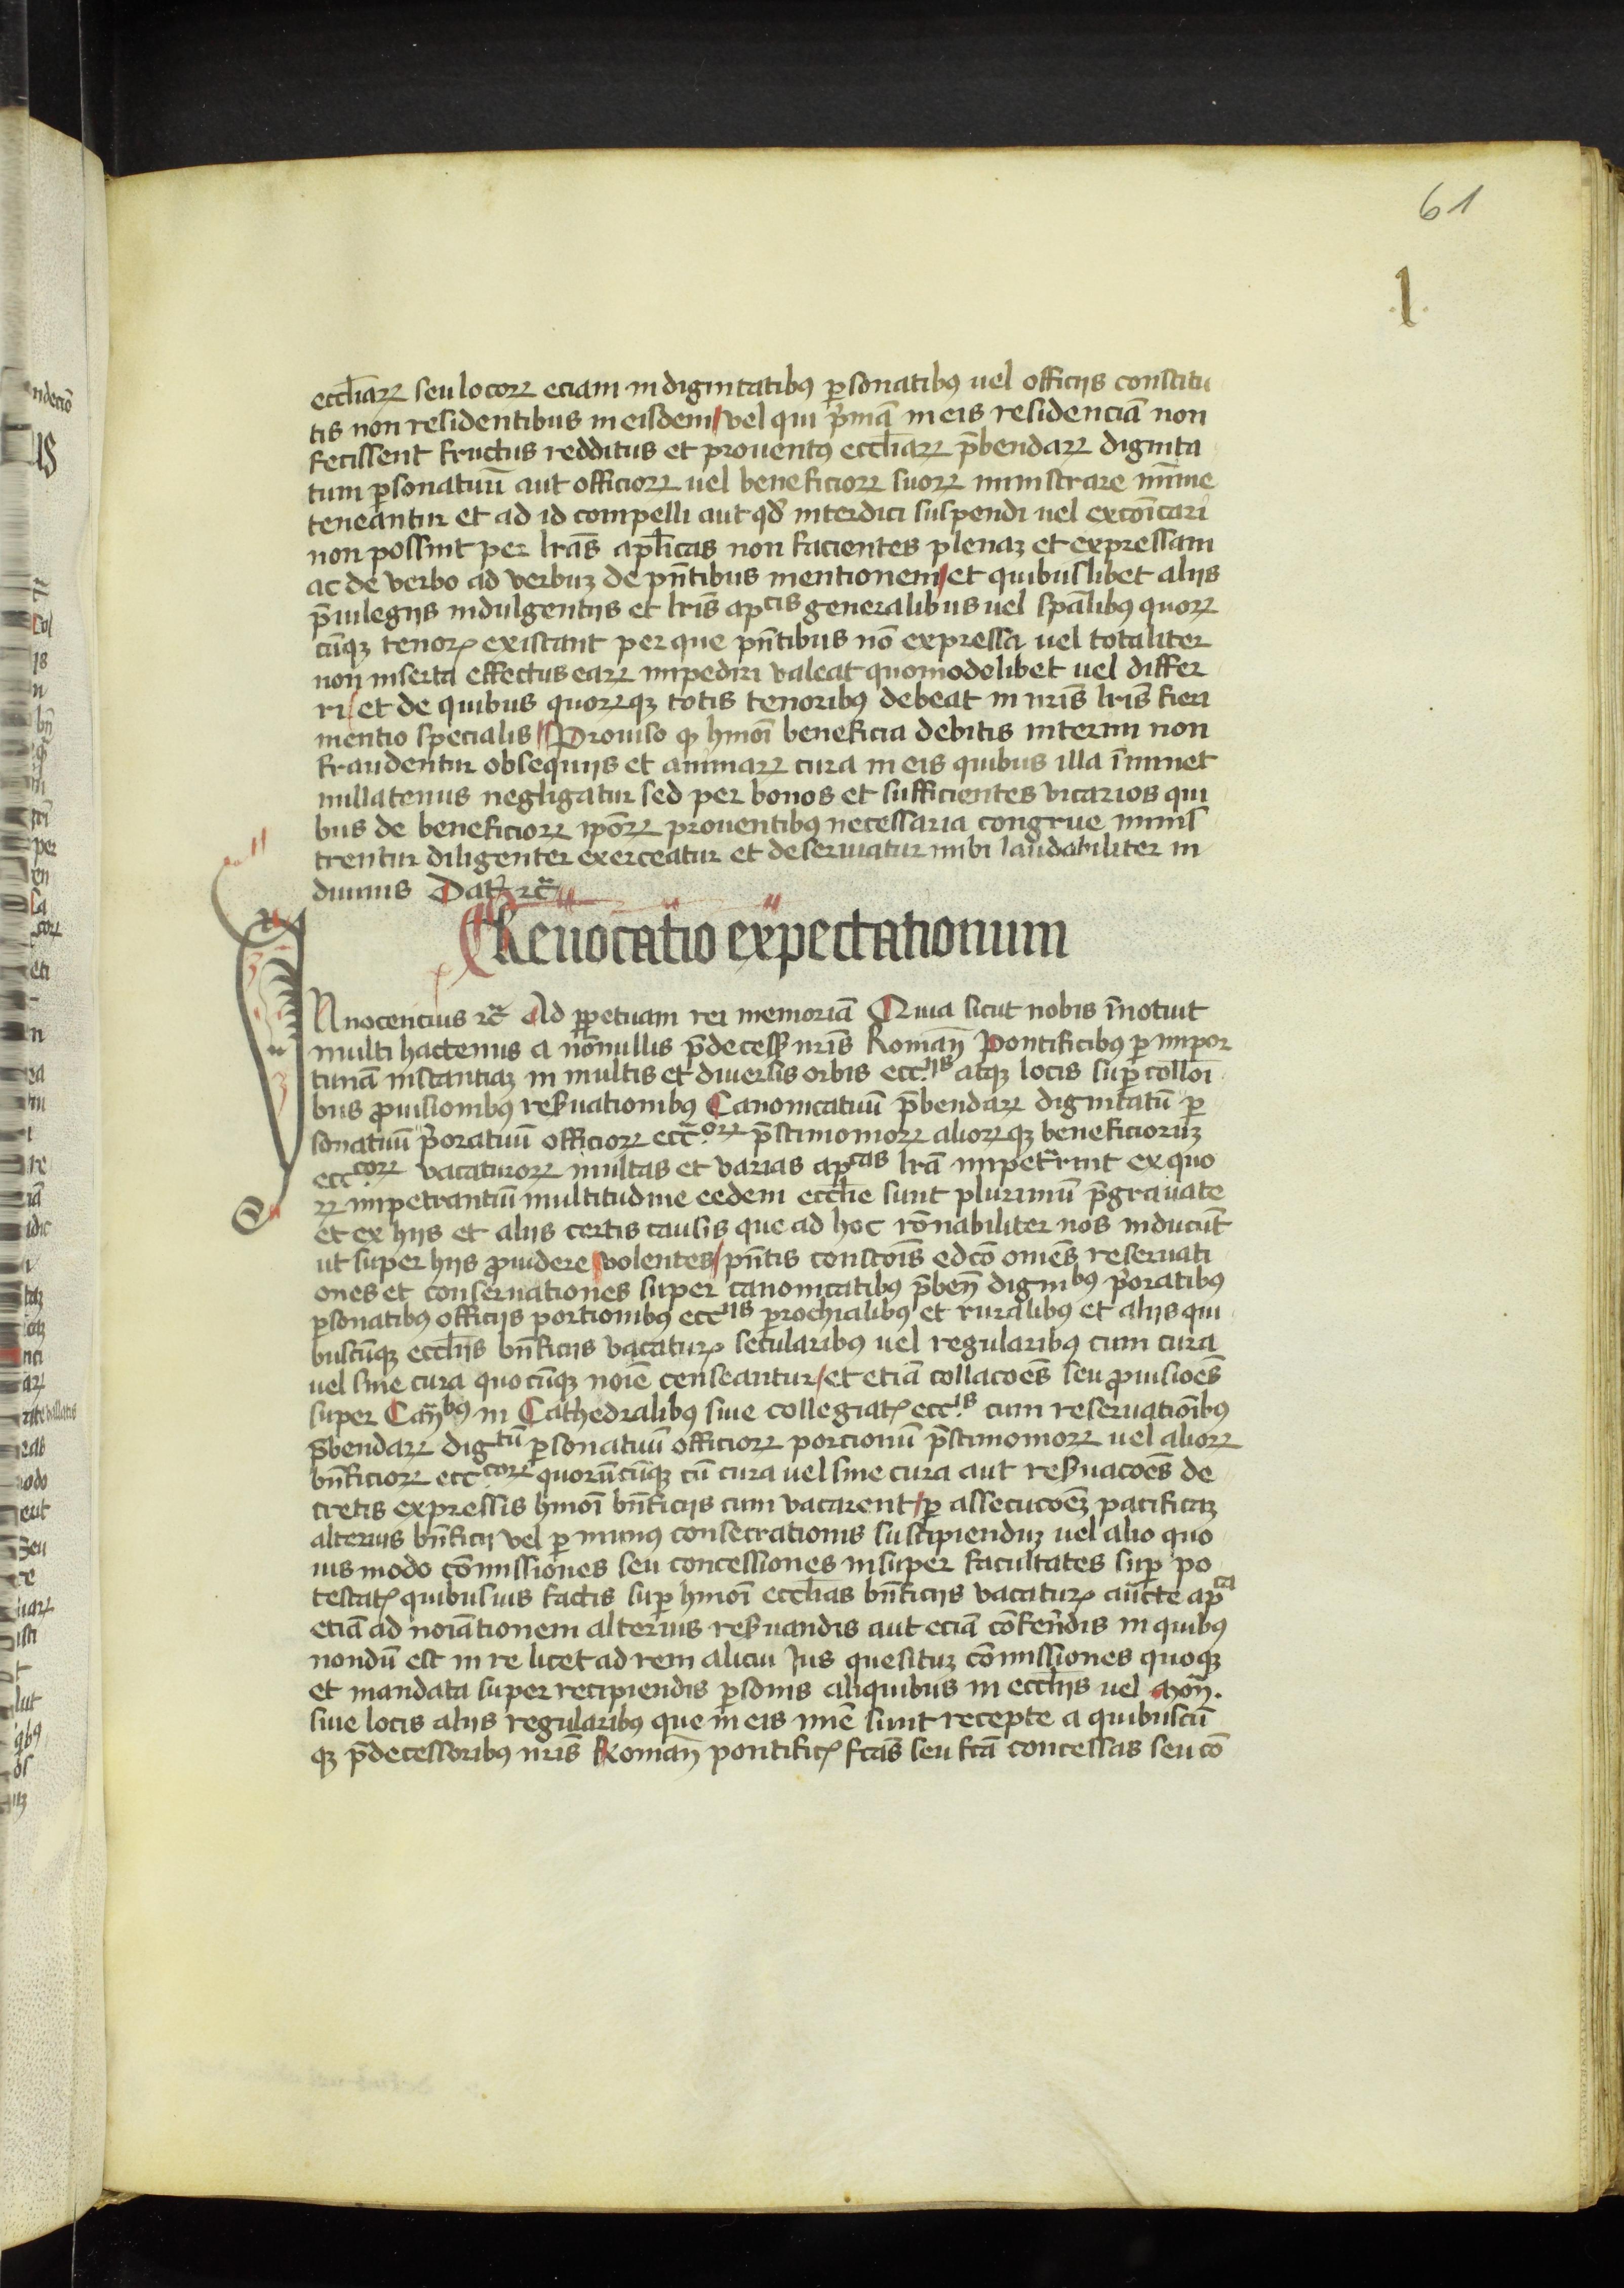 61
.l.
eccl̄iaꝝ seu locoꝝ eciam in dignitatibꝰ ꝑsonatibꝰ uel officijs constitu
tis non residentibus in eisdem / vel qui p̄imā in eis residenciā non
fecissent fructus redditus et prouentꝰ eccl̄iaꝝ p̄bendaꝝ dignita
tum ꝑsonatuū aut officioꝝ uel beneficioꝝ suoꝝ ministrare mīme
teneantur et ad id compelli aut qd̄ interdici suspendi uel excōicari
non possint per lr̄as apl̄icas non facientes plenaꝫ et expressam
ac de verbo ad verbuꝫ de pn̄tibus mentionem / et quibuslibet alijs
p̄iuilegijs indulgentijs et lr̄is apcis generalibus uel spāl̄ibꝰ quoꝝ
cūqꝫ tenoꝝ existant per que pn̄tibus nō expressa uel totaliter
non inserta effectus eaꝝ impediri valeat quomodolibet uel differ
ri / et de quibus quoꝝqꝫ totis tenoribꝰ debeat in nr̄is lr̄is fieri
mentio specialis Prouiso ꝙ hmōi beneficia debitis interim non
fraudentur obsequijs et animaꝝ cura in eis quibus illa īminet
nullatenus negligatur sed per bonos et sufficientes vicarios qui
bus de beneficioꝝ ip̄oꝝ prouentibꝰ necessaria congrue minis
trentur diligenter exerceatur et deseruiatur inibi laudabiliter in
diuinis Datꝫ ⁊c̄
Reuocatio expectationum
INnocencius ⁊c̄ Ad ꝑpetuam rei memoriā Quia sicut nobis īnotuit
multi hactenus a nōnullis p̄decess̄ nr̄is Romāꝝ Pontificibꝰ ꝑ impor
tunā instantiaꝫ in multis et diuersis orbis ecc.ijs atqꝫ locis suꝑ collōi
bus ꝓuisionibꝰ reſuationibꝰ Canonicatuū p̄bendaꝝ dignitatū ꝑ
sonatuū p̄oratuū officioꝝ ecc̄.oꝝ p̄stimonioꝝ alioꝝqꝫ beneficioruꝫ
ecc.coꝝ vacaturoꝝ multas et varias apcas lr̄ā impetr̄rint ex quo
ꝝ impetrantiū multitudine eedem eccl̄ie sunt plurimū p̄grauate
et ex hijs et alijs certis causis que ad hoc rōnabiliter nos inducūt
ut super hijs ꝓuidere / volentes / pn̄tis constōis edcō om̄es reseruati
ones et conseruationes super canonicatibꝰ p̄ben̄ dignibꝰ p̄oratibꝰ
ꝑsonatibꝰ officijs portionibꝰ eccijs ꝑrochialibꝰ et ruralibꝰ et alijs qui
buscūqꝫ eccl̄ijs bn̄ficijs vacaturꝭ secularibꝰ uel regularibꝰ cum cura
uel sine cura quocūqꝫ noīe censeantur / et etiā collacōes seu ꝓuisiōes
super Can̄bꝰ in Cathedralibꝰ siue collegiatꝭ ecc.is cum reseruatiōibus
p̄bendaꝝ digtū ꝑsonatuū officioꝝ porcionū p̄stimonioꝝ uel alioꝝ
bn̄ficioꝝ ecc.coꝝ quorūcūqꝫ cū cura uel sine cura aut reſuacōes de
cretis expressis hmōi bn̄ficijs cum vacarent / ꝑ assecucōeꝫ pacificaꝫ
alterius bn̄ficij vel ꝑ munꝰ consecrationis suscipienduꝫ uel alio quo
uis modo cōmissiones seu concessiones insuper facultates suꝑ po
testatꝭ quibusuis factis suꝑ hmōi eccl̄ias bn̄ficijs vacaturꝭ auc̄te apca
etiā ad noīationem alterius reſuandis aut eciā cōferēdis in quibꝰ
nondū est in re licet ad rem alicui Jus quesituꝫ cōmissiones quoqꝫ
et mandata super recipiendis ꝑsōnis aliquibus in eccl̄ijs uel Mon̄.
siue locis alijs regularibꝰ que in eis mīe sunt recepte a quibuscū
qꝫ p̄decessoribꝰ nr̄is Romāꝝ pontificꝭ fcās seu fcā concessas seu cō